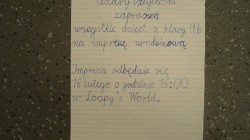 zaprasza
wszystkie dzieci z klasy IIIb
na imprezę urodzinową
Impreza odbędzie się
16 lutego o godzinie 16:00
w Loopy's World.